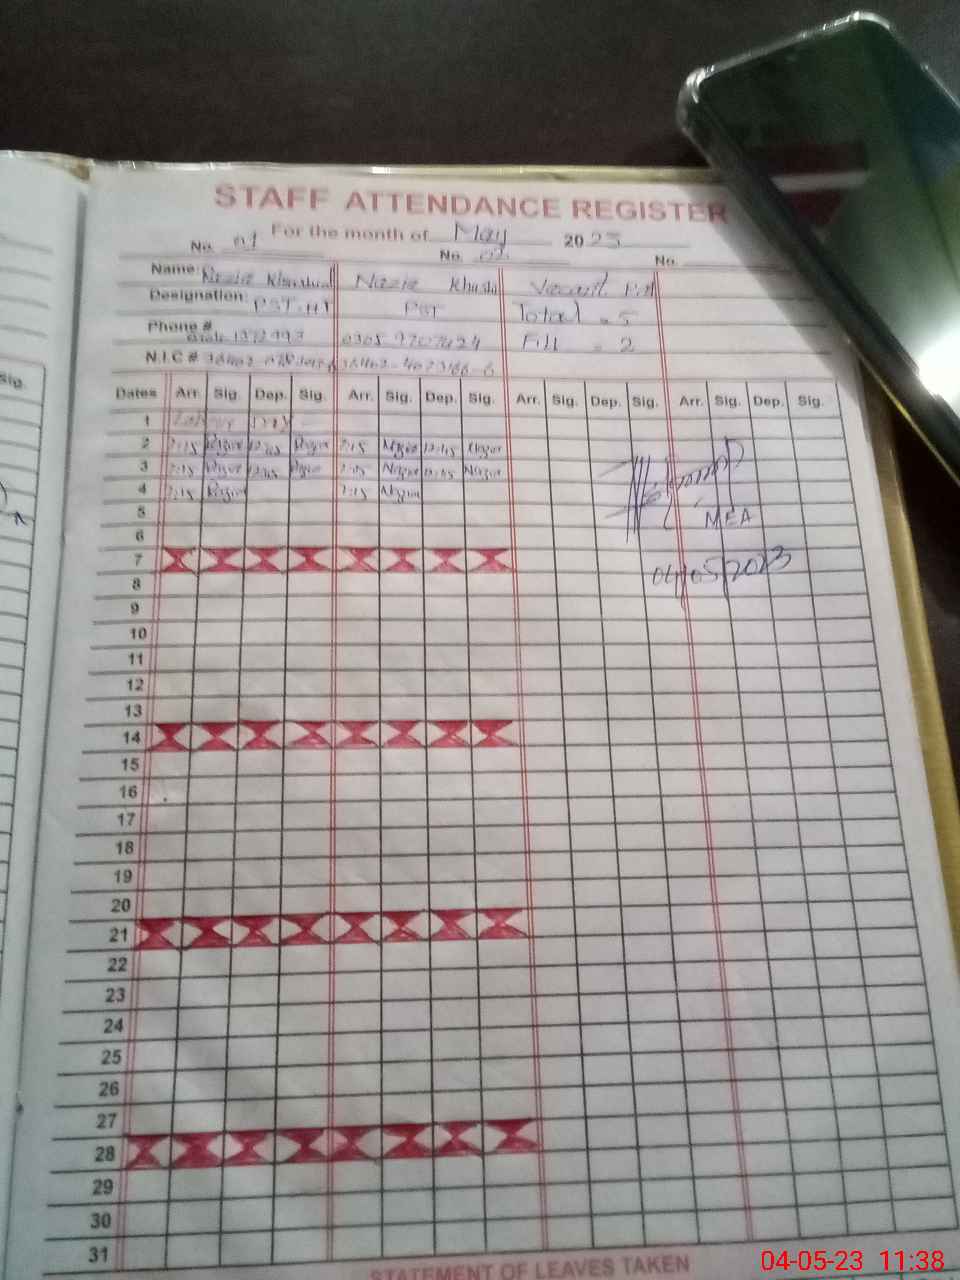 STAFF ATTENDANCE REGISTER
For the month of May 2023
No. 01 No. 02 No.
Name: Khushi Nazia Khushi Vacant
Designation: PST PST Total = 5
Phone # Fill = 2
N.I.C #
Dates Arr. Sig. Dep. Sig. Arr. Sig. Dep. Sig. Arr. Sig. Dep. Sig. Arr. Sig. Dep. Sig.
1 Labour Day
2 7:15 12:45 7:15 Nazia 12:45 Nazia
3 7:15 12:45 7:15 Nazia 12:45 Nazia
4 7:15 7:15 Nazia
MEA
5
6
7
04/05/2023
8
9
10
11
12
13
14
15
16
17
18
19
20
21
22
23
24
25
26
27
28
29
30
31
STATEMENT OF LEAVES TAKEN
Sig.
04-05-23 11:38